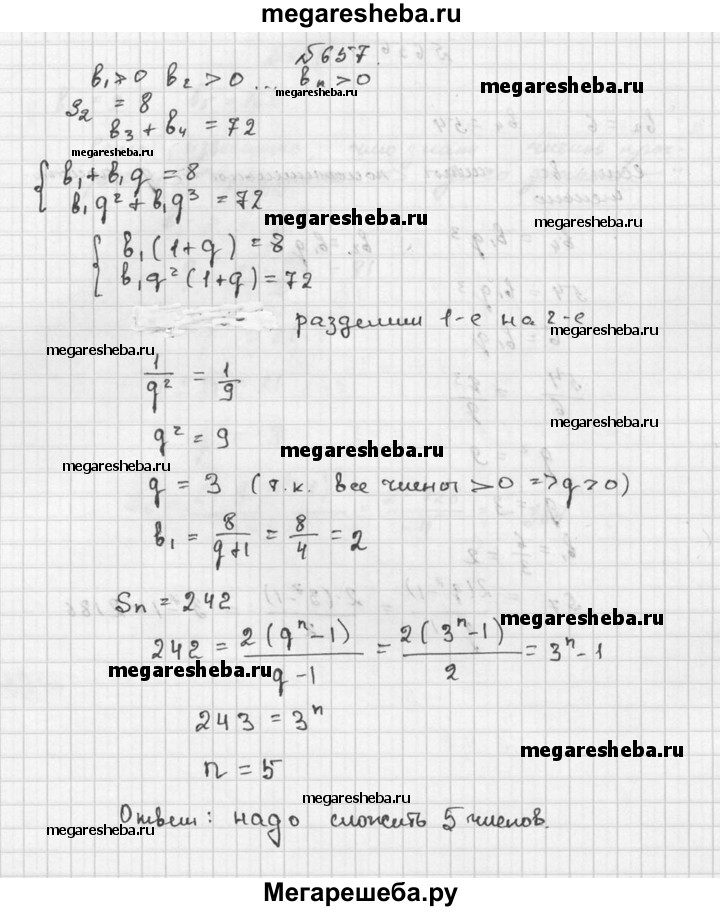 megaresheba.ru
№657.
b₁>0 b₂>0 ... bₙ>0
megaresheba.ru
megaresheba.ru
S₂ = 8
b₃ + b₄ = 72
megaresheba.ru
{ b₁ + b₁q = 8
b₁q² + b₁q³ = 72
megaresheba.ru
megaresheba.ru
{ b₁(1+q) = 8
b₁q²(1+q) = 72
разделим 1-е на 2-е
megaresheba.ru
megaresheba.ru
1/q² = 1/9
megaresheba.ru
q² = 9
megaresheba.ru
megaresheba.ru
q = 3 (т.к. все члены >0 => q>0)
b₁ = 8/(q+1) = 8/4 = 2
megaresheba.ru
Sₙ = 242
megaresheba.ru
242 = 2(qⁿ-1)/(q-1) = 2(3ⁿ-1)/2 = 3ⁿ-1
megaresheba.ru
243 = 3ⁿ
megaresheba.ru
n = 5
megaresheba.ru
Ответ: надо сложить 5 членов.
megaresheba.ru
megaresheba.ru
Мегарешеба.ру